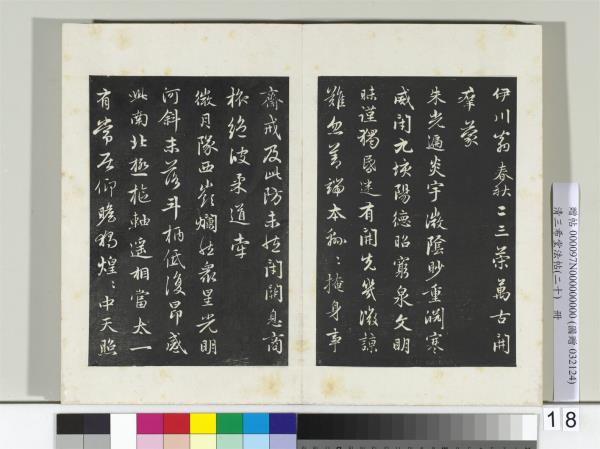 伊川翁春秋二三策萬古開
群蒙
朱光遍炎宇微陰眇重淵寒
威閉九垓陽德昭窮泉文明
昧謹獨昏迷有開先幾微諒
難忽善端本綿〻掩身事
齋戒及此防未然閉關息商
旅絕彼柔道牽
微月墮西嶺爛然衆星光明
河斜未落斗柄低復昂感
此南北極樞軸遙相當太一
有常居仰瞻獨煌〻中天照
贈帖 000097N000000000 (國贈 032124)
清三希堂法帖(二十) 冊
18